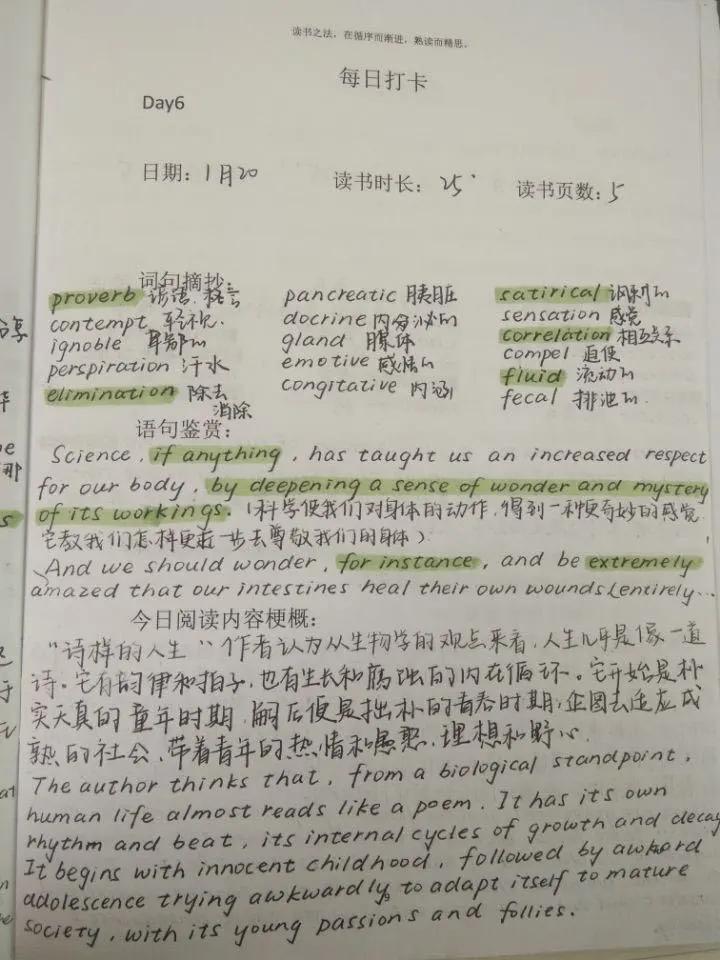 读书之法，在循序而渐进，熟读而精思。
每日打卡
Day6
日期：1月20 读书时长：25' 读书页数：5
词句摘抄：
proverb 谚语、格言 pancreatic 胰脏 satirical 讽刺的
contempt 轻视. docrine 内分泌的 sensation 感觉
ignoble 卑鄙的 gland 腺体 correlation 相互关系
perspiration 汗水 emotive 感情的 compel 迫使
elimination 除去 congitative 内涵 fluid 流动的
消除 fecal 排泄的.
语句鉴赏：
Science, if anything, has taught us an increased respect
for our body, by deepening a sense of wonder and mystery
of its workings. (科学使我们对身体的动作，得到一种更奇妙的感觉
它教我们怎样更进一步去尊敬我们的身体)
And we should wonder, for instance, and be extremely
amazed that our intestines heal their own wounds (entirely...
今日阅读内容梗概：
"诗样的人生" 作者认为从生物学的观点来看，人生几乎是像一道
诗。它有韵律和拍子，也有生长和腐蚀的内在循环。它开始是朴
实天真的童年时期，嗣后便是拙朴的青春时期，企图去适应成
熟的社会，带着青年的热情和愚憨，理想和野心.
The author thinks that, from a biological standpoint,
human life almost reads like a poem. It has its own
rhythm and beat, its internal cycles of growth and decay
It begins with innocent childhood, followed by awkard
adolescence trying awkwardly to adapt itself to mature
society, with its young passions and follies.